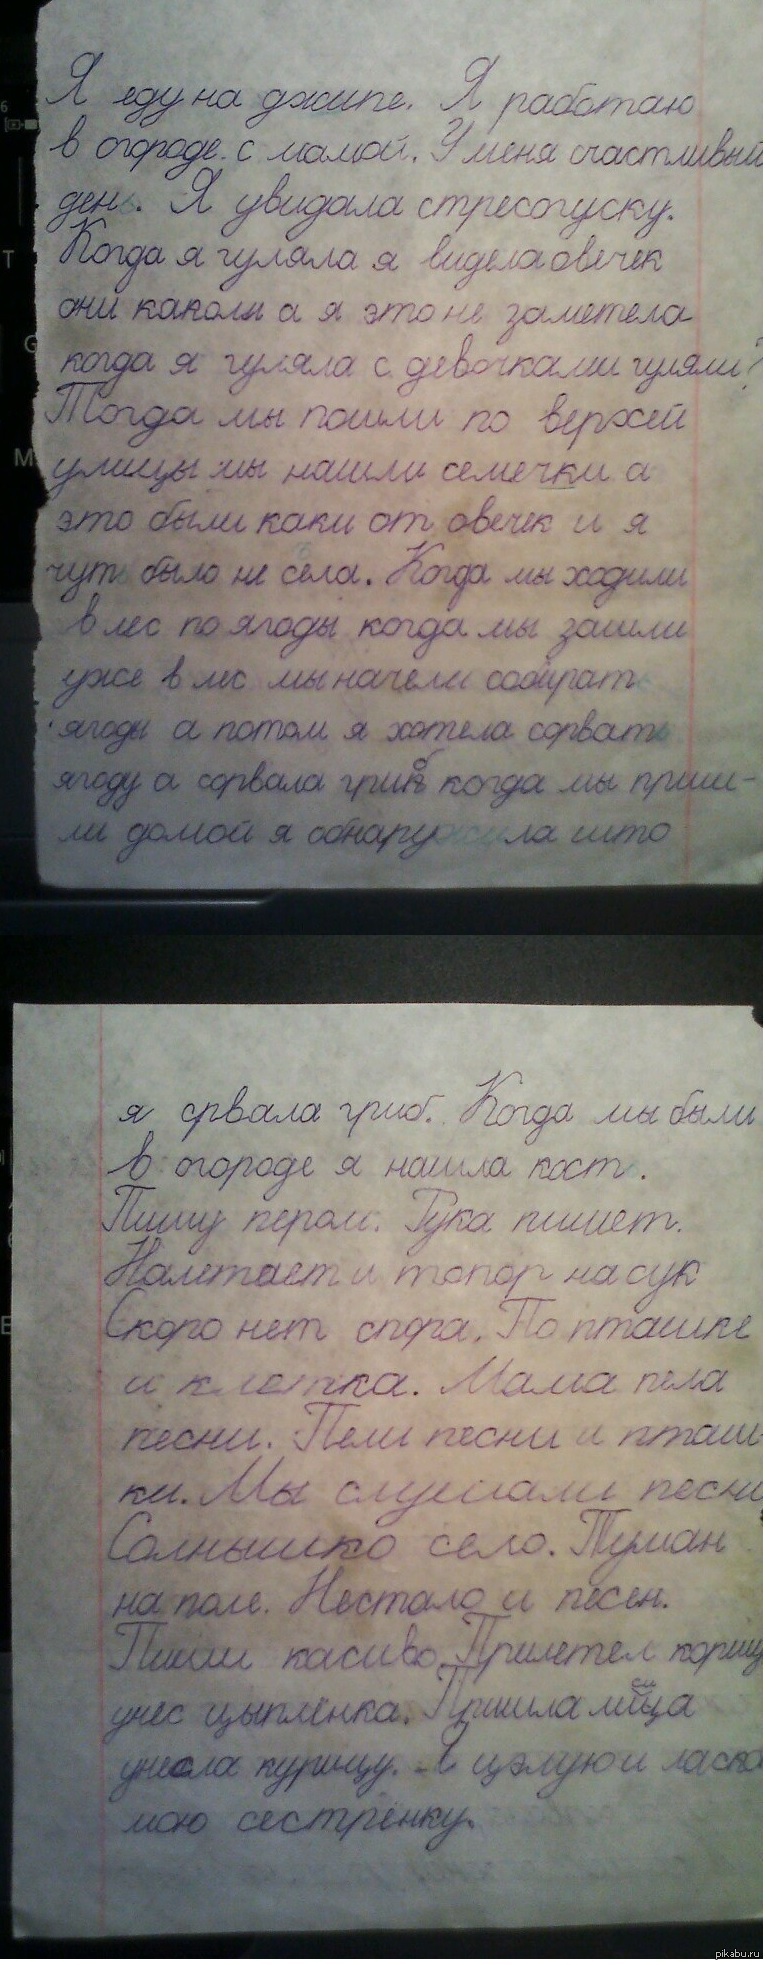 Я еду на джипе. Я работаю
в огороде с мамой. У меня счастливый
день. Я увидала стресогуску.
Когда я гуляла я видела овечек
они каколи а я это не заметела
когда я гуляла с девочками гуляли?
Тогда мы пошли по верхей
улицы мы нашли семечки а
это были каки от овечек и я
чуть было не села. Когда мы ходили
в лес по ягоды когда мы зашли
уже в лес мы начели собират
ягоды а потом я хотела сорвать
ягоду а сорвала гриб когда мы приш-
ли домой я обнаружила што
я срвала гриб. Когда мы были
в огороде я нашла кост.
Пишу пером. Рука пишет.
Налетает и топор на сук
Скоро нет спора. По пташке
и клетка. Мама пела
песни. Пели песни и пташ-
ки. Мы слушали песни
Солнышко село. Туман
на поле. Нестало и песен.
Пиши касиво. Прилетел коршу
унес цыпленка. Пришла лисица
унесла курицу. Я цэлую и ласка
мою сестрёнку.
pikabu.ru